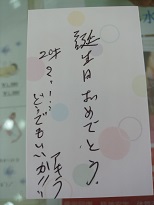 誕生日おめでとう。
20才?!…
どうでもいいか!!
アキラ